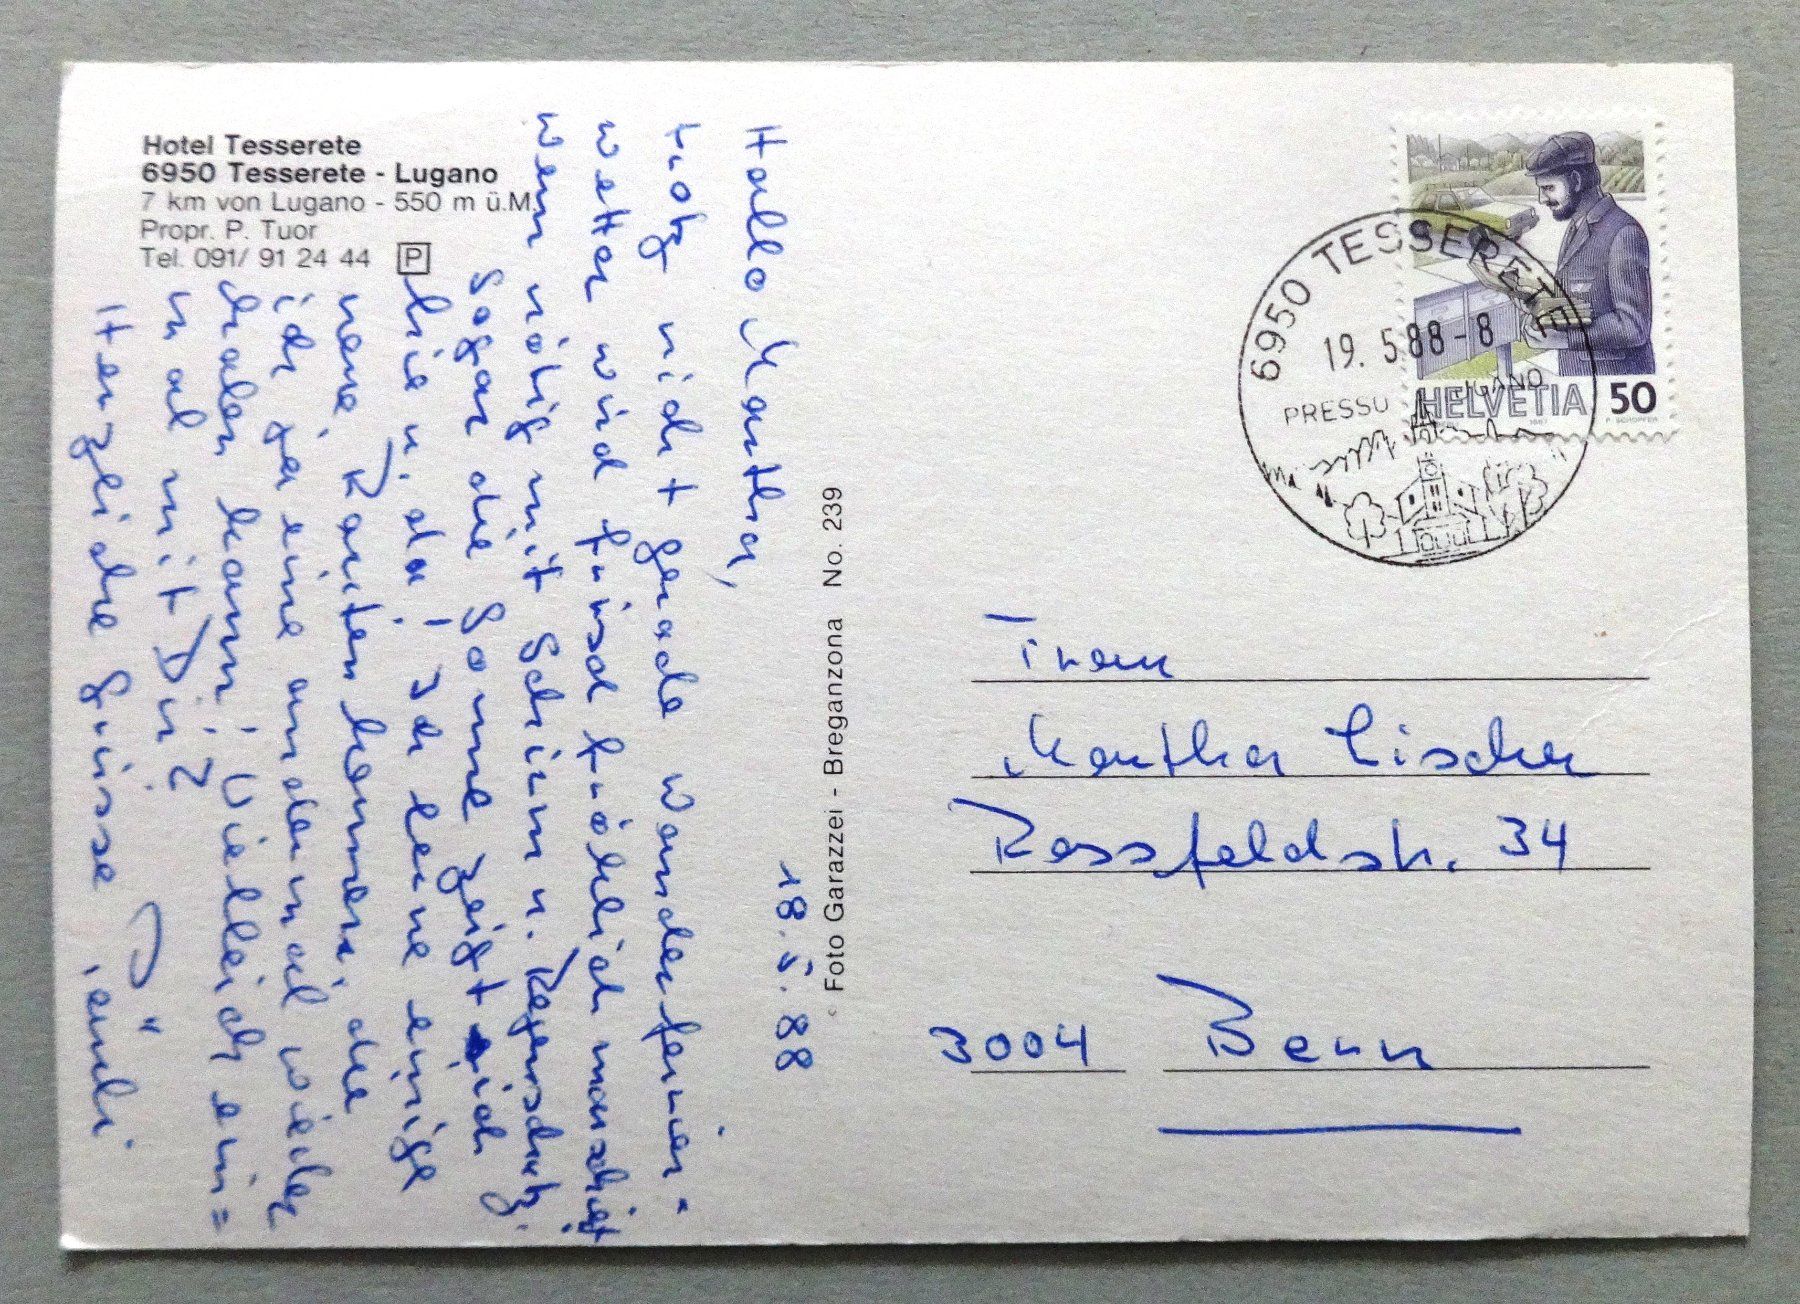 Hotel Tesserete
6950 Tesserete - Lugano
7 km von Lugano - 550 m ü.M.
Propr. P. Tuor
Tel. 091/ 91 24 44 P
18.5.88
Hallo Martha,
trotz nicht gerade wanderferien-
wetter wird frisch fröhlich marschiert
wenn nötig mit Schirm u. Regenschutz.
Sogar die Sonne zeigt sich
hie u. da! Ich lerne einige
neue Routen kennen, die
ich ja eine andermal wieder
brauchen kann! Vielleich ein=
mal mit Dir?
Herzliche Grüsse
Foto Garazzei - Breganzona No. 239
6950 TESSERETE
19.5.88-8
PRESSO LUGANO
HELVETIA 50
1987 P. SCHOPFER
Frau
Martha Lischer
Rossfeldstr. 34
3004 Bern